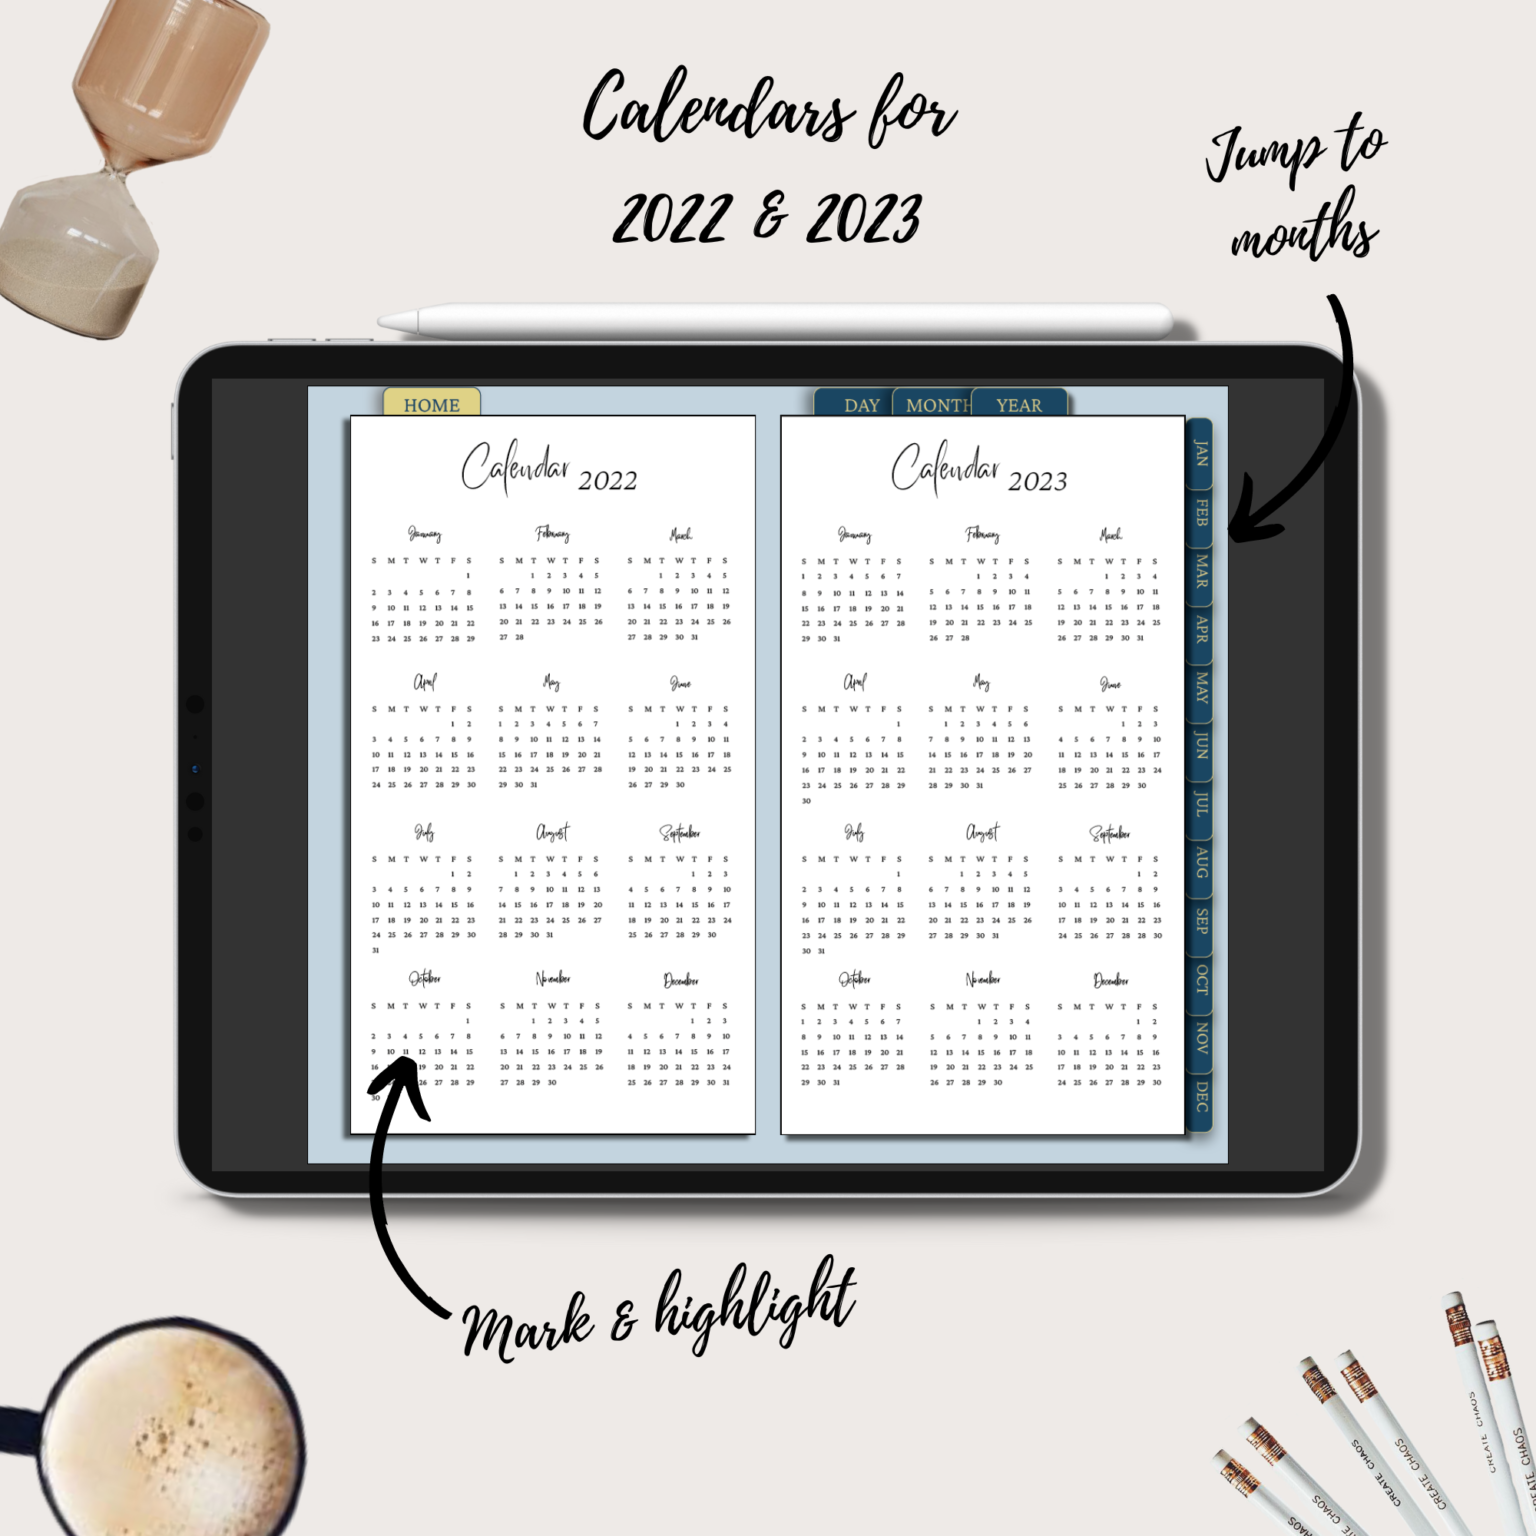 Calendars for
2022 & 2023
Jump to
months
HOME
DAY MONTH YEAR
Calendar 2022
January February March
S M T W T F S S M T W T F S S M T W T F S
1 1 2 3 4 5 1 2 3 4 5
2 3 4 5 6 7 8 6 7 8 9 10 11 12 6 7 8 9 10 11 12
9 10 11 12 13 14 15 13 14 15 16 17 18 19 13 14 15 16 17 18 19
16 17 18 19 20 21 22 20 21 22 23 24 25 26 20 21 22 23 24 25 26
23 24 25 26 27 28 29 27 28 27 28 29 30 31
April May June
S M T W T F S S M T W T F S S M T W T F S
1 2 1 2 3 4 5 6 7 1 2 3 4
3 4 5 6 7 8 9 8 9 10 11 12 13 14 5 6 7 8 9 10 11
10 11 12 13 14 15 16 15 16 17 18 19 20 21 12 13 14 15 16 17 18
17 18 19 20 21 22 23 22 23 24 25 26 27 28 19 20 21 22 23 24 25
24 25 26 27 28 29 30 29 30 31 26 27 28 29 30
July August September
S M T W T F S S M T W T F S S M T W T F S
1 2 1 2 3 4 5 6 1 2 3
3 4 5 6 7 8 9 7 8 9 10 11 12 13 4 5 6 7 8 9 10
10 11 12 13 14 15 16 14 15 16 17 18 19 20 11 12 13 14 15 16 17
17 18 19 20 21 22 23 21 22 23 24 25 26 27 18 19 20 21 22 23 24
24 25 26 27 28 29 30 28 29 30 31 25 26 27 28 29 30
31
October November December
S M T W T F S S M T W T F S S M T W T F S
1 1 2 3 4 5 1 2 3
2 3 4 5 6 7 8 6 7 8 9 10 11 12 4 5 6 7 8 9 10
9 10 11 12 13 14 15 13 14 15 16 17 18 19 11 12 13 14 15 16 17
16 19 20 21 22 20 21 22 23 24 25 26 18 19 20 21 22 23 24
26 27 28 29 27 28 29 30 25 26 27 28 29 30 31
30
Calendar 2023
January February March
S M T W T F S S M T W T F S S M T W T F S
1 2 3 4 5 6 7 1 2 3 4 1 2 3 4
8 9 10 11 12 13 14 5 6 7 8 9 10 11 5 6 7 8 9 10 11
15 16 17 18 19 20 21 12 13 14 15 16 17 18 12 13 14 15 16 17 18
22 23 24 25 26 27 28 19 20 21 22 23 24 25 19 20 21 22 23 24 25
29 30 31 26 27 28 26 27 28 29 30 31
April May June
S M T W T F S S M T W T F S S M T W T F S
1 1 2 3 4 5 6 1 2 3
2 3 4 5 6 7 8 7 8 9 10 11 12 13 4 5 6 7 8 9 10
9 10 11 12 13 14 15 14 15 16 17 18 19 20 11 12 13 14 15 16 17
16 17 18 19 20 21 22 21 22 23 24 25 26 27 18 19 20 21 22 23 24
23 24 25 26 27 28 29 28 29 30 31 25 26 27 28 29 30
30
July August September
S M T W T F S S M T W T F S S M T W T F S
1 1 2 3 4 5 1 2
2 3 4 5 6 7 8 6 7 8 9 10 11 12 3 4 5 6 7 8 9
9 10 11 12 13 14 15 13 14 15 16 17 18 19 10 11 12 13 14 15 16
16 17 18 19 20 21 22 20 21 22 23 24 25 26 17 18 19 20 21 22 23
23 24 25 26 27 28 29 27 28 29 30 31 24 25 26 27 28 29 30
30 31
October November December
S M T W T F S S M T W T F S S M T W T F S
1 2 3 4 5 6 7 1 2 3 4 1 2
8 9 10 11 12 13 14 5 6 7 8 9 10 11 3 4 5 6 7 8 9
15 16 17 18 19 20 21 12 13 14 15 16 17 18 10 11 12 13 14 15 16
22 23 24 25 26 27 28 19 20 21 22 23 24 25 17 18 19 20 21 22 23
29 30 31 26 27 28 29 30 24 25 26 27 28 29 30
JAN
FEB
MAR
APR
MAY
JUN
JUL
AUG
SEP
OCT
NOV
DEC
Mark & highlight
CREATE CHAOS
CHAOS
CREATE CHAOS
CREATE CHAOS
CREATE CHAOS
CHAOS